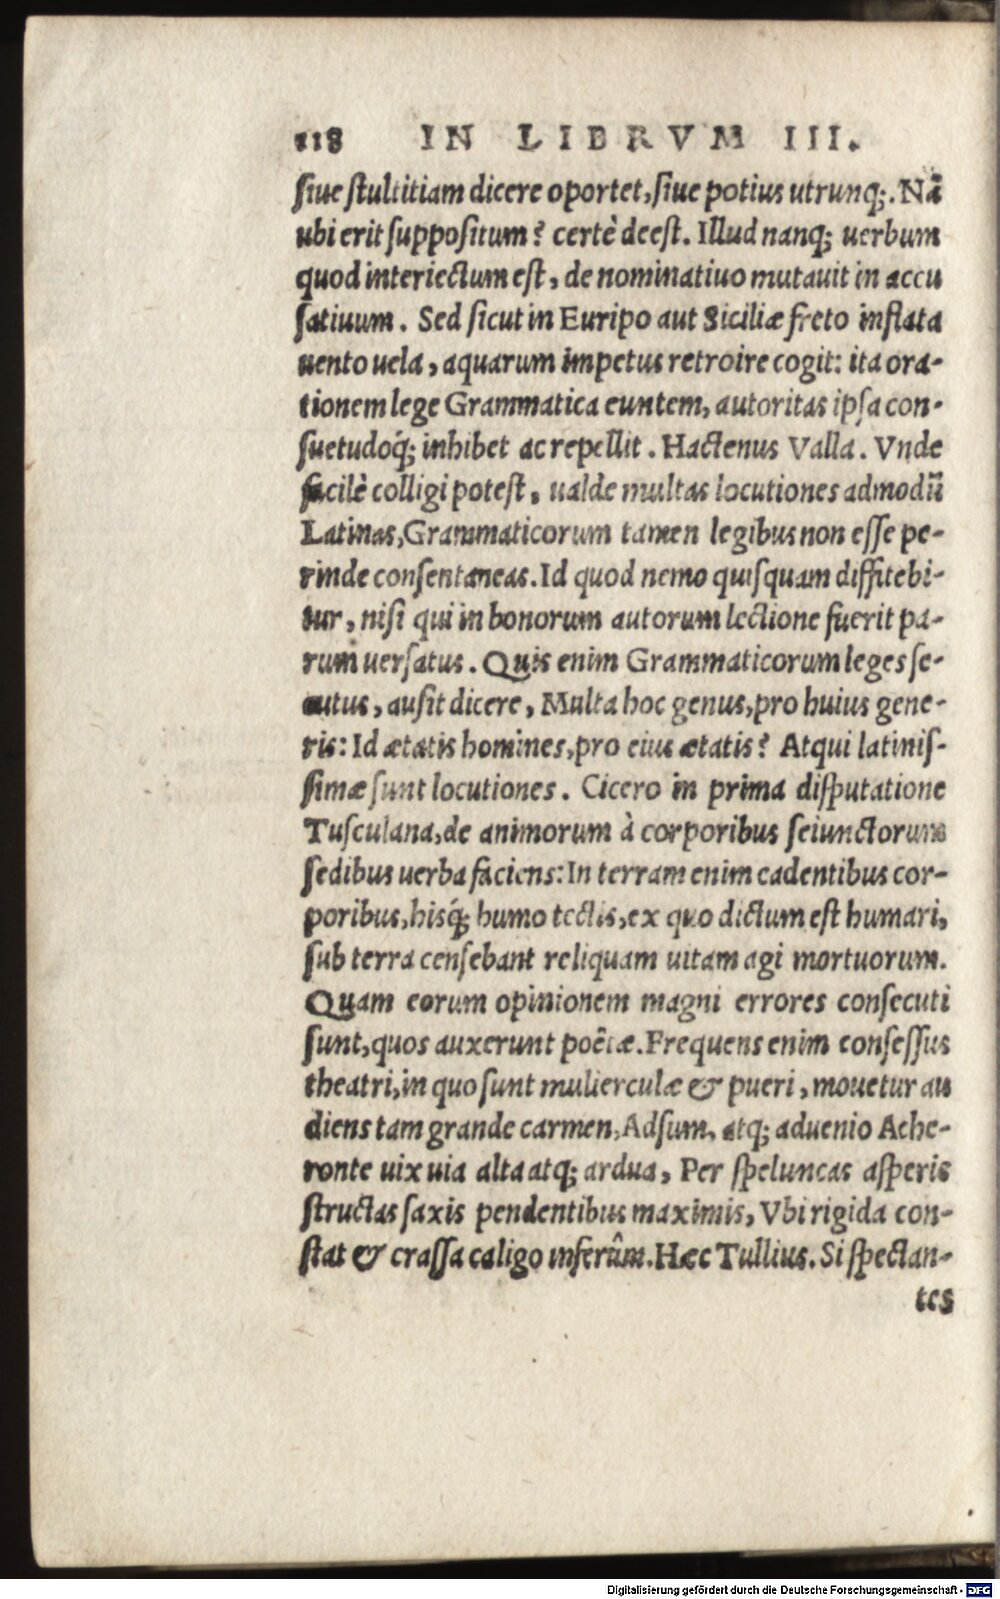 118 IN LIBRVM III.
siue stultitiam dicere oportet, siue potius utrunq;. Nā
ubi erit suppositum? certè deest. Illud nanq; uerbum
quod interiectum est, de nominatiuo mutauit in accu
satiuum. Sed sicut in Euripo aut Siciliæ freto inflata
uento uela, aquarum impetus retroire cogit: ita ora-
tionem lege Grammatica euntem, autoritas ipsa con-
suetudoq́; inhibet ac repellit. Hactenus Valla. Vnde
facilè colligi potest, ualde multas locutiones admodū
Latinas, Grammaticorum tamen legibus non esse pe-
rinde consentaneas. Id quod nemo quisquam diffitebi-
tur, nisi qui in bonorum autorum lectione fuerit pa-
rum uersatus. Quis enim Grammaticorum leges se-
cutus, ausit dicere, Multa hoc genus, pro huius gene-
ris: Id ætatis homines, pro eius ætatis? Atqui latinis-
simæ sunt locutiones. Cicero in prima disputatione
Tusculana, de animorum à corporibus seiunctorum
sedibus uerba faciens: In terram enim cadentibus cor-
poribus, hisq́; humo tectis, ex quo dictum est humari,
sub terra censebant reliquam uitam agi mortuorum.
Quam eorum opinionem magni errores consecuti
sunt, quos auxerunt poëtæ. Frequens enim consessus
theatri, in quo sunt mulierculæ & pueri, mouetur au
diens tam grande carmen, Adsum, atq; aduenio Ache-
ronte uix uia alta atq; ardua, Per speluncas asperis
structas saxis pendentibus maximis, Vbi rigida con-
stat & crassa caligo inferûm. Hæc Tullius. Si spectan-
tes
Digitalisierung gefördert durch die Deutsche Forschungsgemeinschaft - DFG